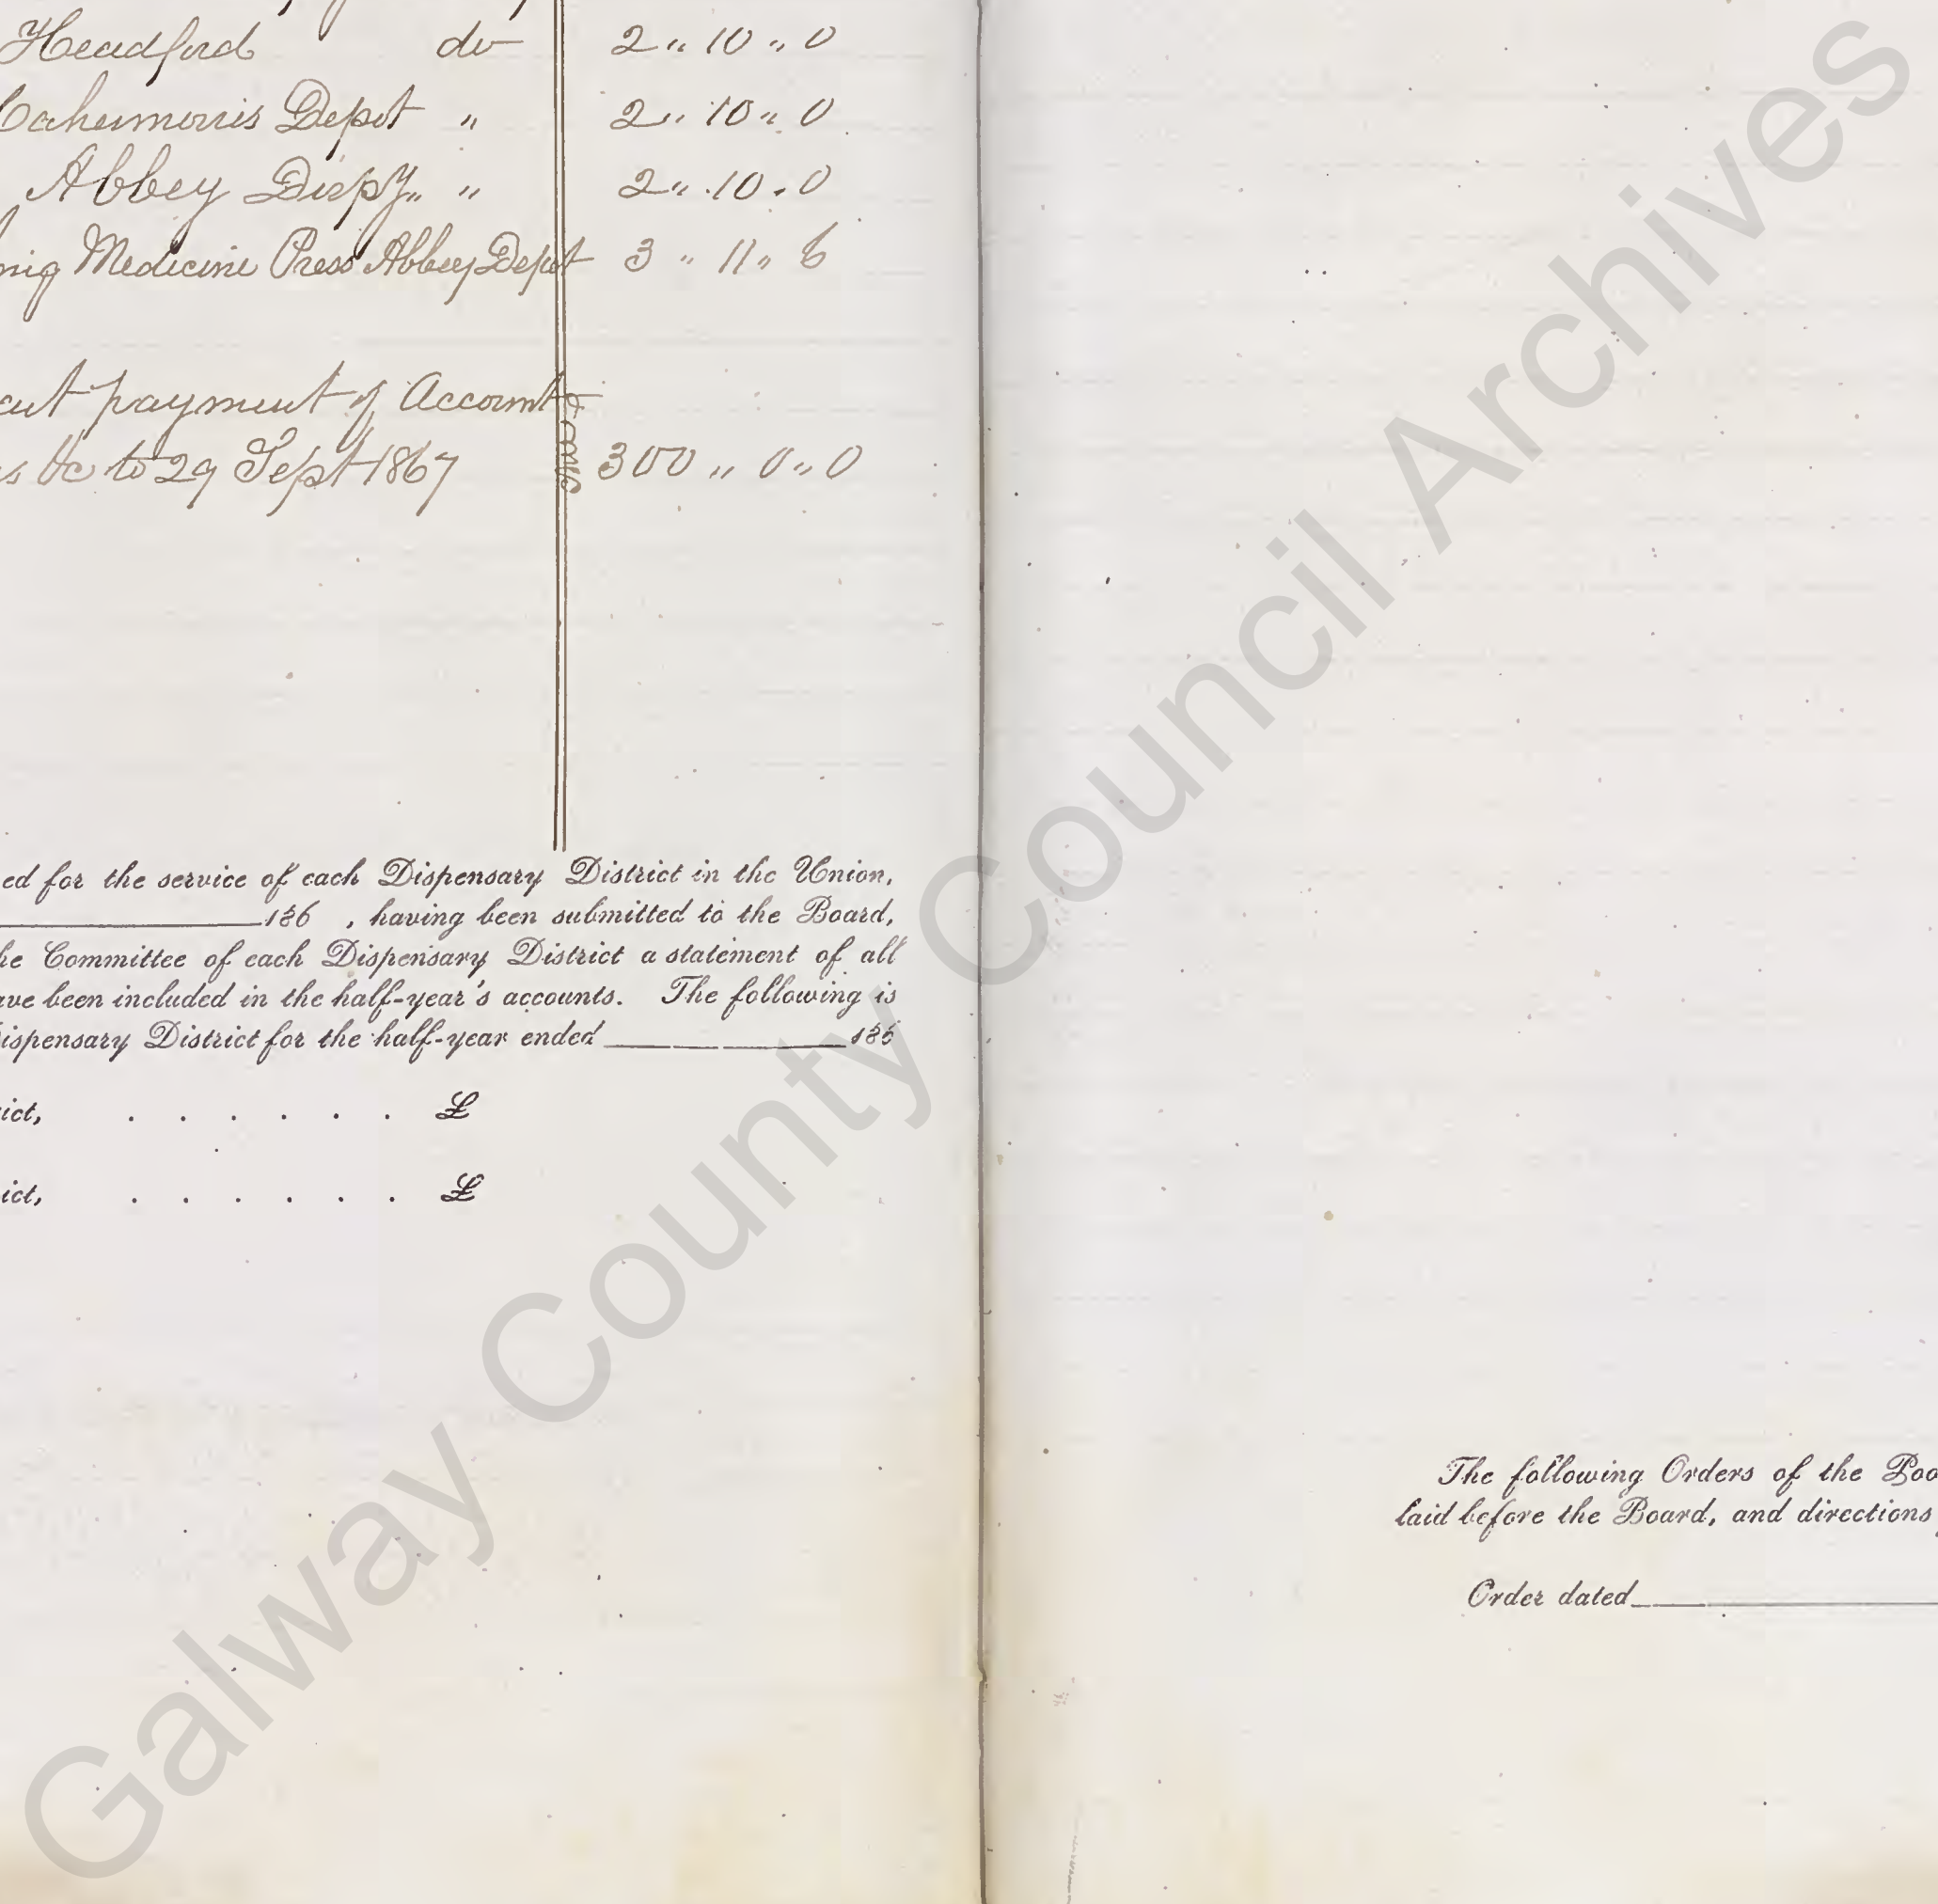 Headford do 2 " 10 " 0
Cahermorris Depot " 2 " 10 " 0
Abbey Dispy " " 2 " 10 " 0
Medicine Press Abbey Depot 3 " 11 " 6
payment of Accounts
&c to 29 Sept 1867 300 " 0 " 0
ed for the service of each Dispensary District in the Union,
186 , having been submitted to the Board,
he Committee of each Dispensary District a statement of all
ave been included in the half-year's accounts. The following is
ispensary District for the half-year ended 186
ict, . . . . . . £
ict, . . . . . . £
The following Orders of the Poo
laid before the Board, and directions
Order dated
Galway County Council Archives